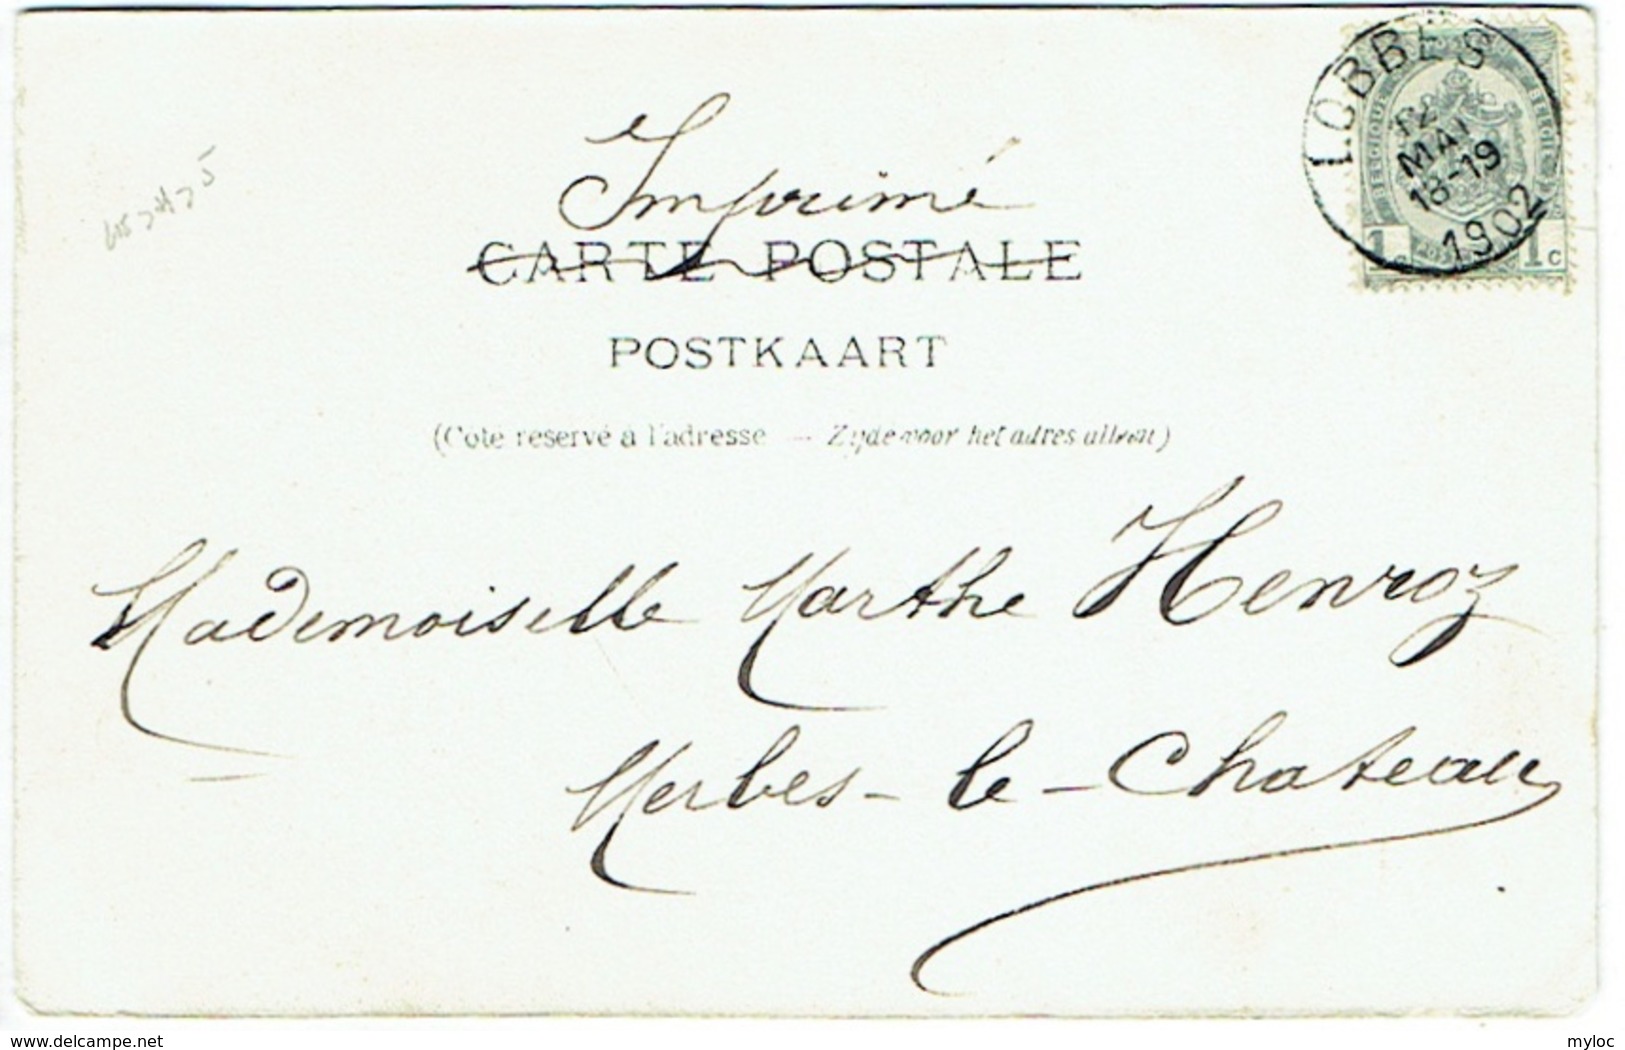 Imprimé
CARTE POSTALE
POSTKAART
(Côté réservé à l'adresse — Zyde voor het adres alleen)
Mademoiselle Marthe Henroz
Merbes-le-Chateau
LOBBES
MAI
18-19
1902
BELGIQUE BELGIË
1c 1c
delcampe.net
myloc